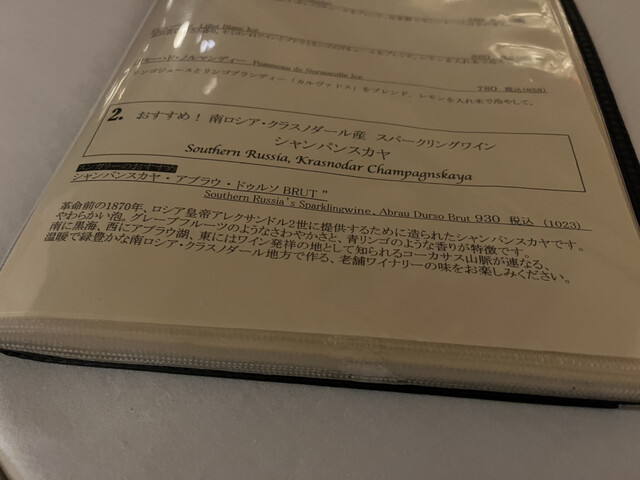 Lillet Blanc Ice
ド・ノルマンディー Pommeau de Normandie Ice
リンゴジュースとリンゴブランディー（カルヴァドス）をブレンド、レモンを入れ氷で冷やして。
780 税込(858)
2. おすすめ！ 南ロシア・クラスノダール産 スパークリングワイン
シャンパンスカヤ
Southern Russia, Krasnodar Champagnskaya
シャンパンスカヤ・アブラウ・ドゥルソ BRUT "
Southern Russia's Sparklingwine, Abrau Durso Brut 930 税込 (1023)
革命前の1870年、ロシア皇帝アレクサンドル2世に提供するために造られたシャンパンスカヤです。
やわらかい泡。グレープフルーツのようなさわやかさと、青リンゴのような香りが特徴です。
南に黒海、西にアブラウ湖、東にはワイン発祥の地として知られるコーカサス山脈が連なる、
温暖で緑豊かな南ロシア・クラスノダール地方で作る、老舗ワイナリーの味をお楽しみください。